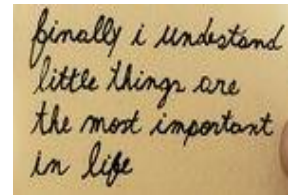 finally i undestand
little things are
the most important
in life